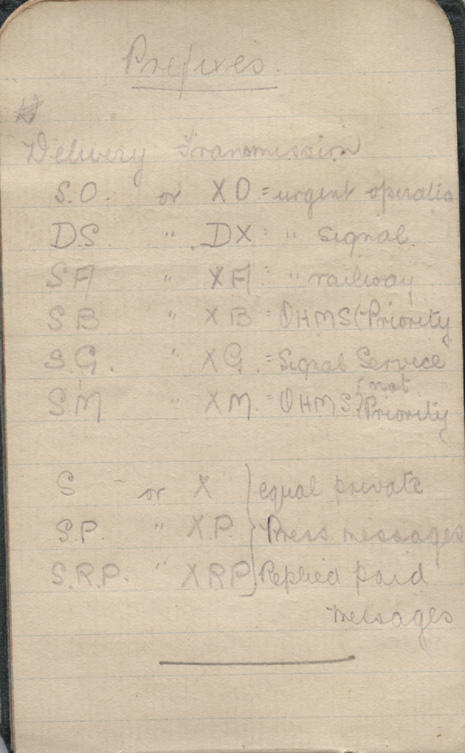 Prefixes.
Delivery Transmission
S.O. or XO = urgent operatio
DS " DX = " signal.
SA " XA = " railway
SB " XB = OHMS (Priority
SG. " XG. = Signal Service
SM " XM. = OHMS (not Priority
S or X } equal private
S.P. " X.P } Press messages
S.R.P. " XRP } Replied paid
messages